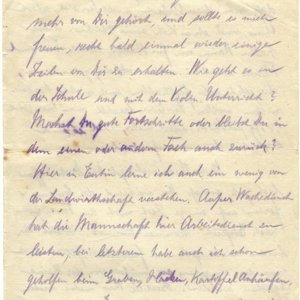 mehr von Dir gehört und sollte es mich
freuen, recht bald einmal wieder einige
Zeilen von Dir zu erhalten. Wie geht es in
der Schule und mit dem Violin Unterricht?
Machst Du gute Fortschritte oder bleibst Du in
dem einen oder andern Fach auch zurück?
Hier in lerne ich auch ein wenig von
der Landwirthschaft verstehen. Ausser Wachedienst
hat die Mannschaft hier Arbeitsdienst zu
leisten, bei letzterem habe auch ich schon
geholfen beim Graben, Hacken, Kartoffel Anhäufen,